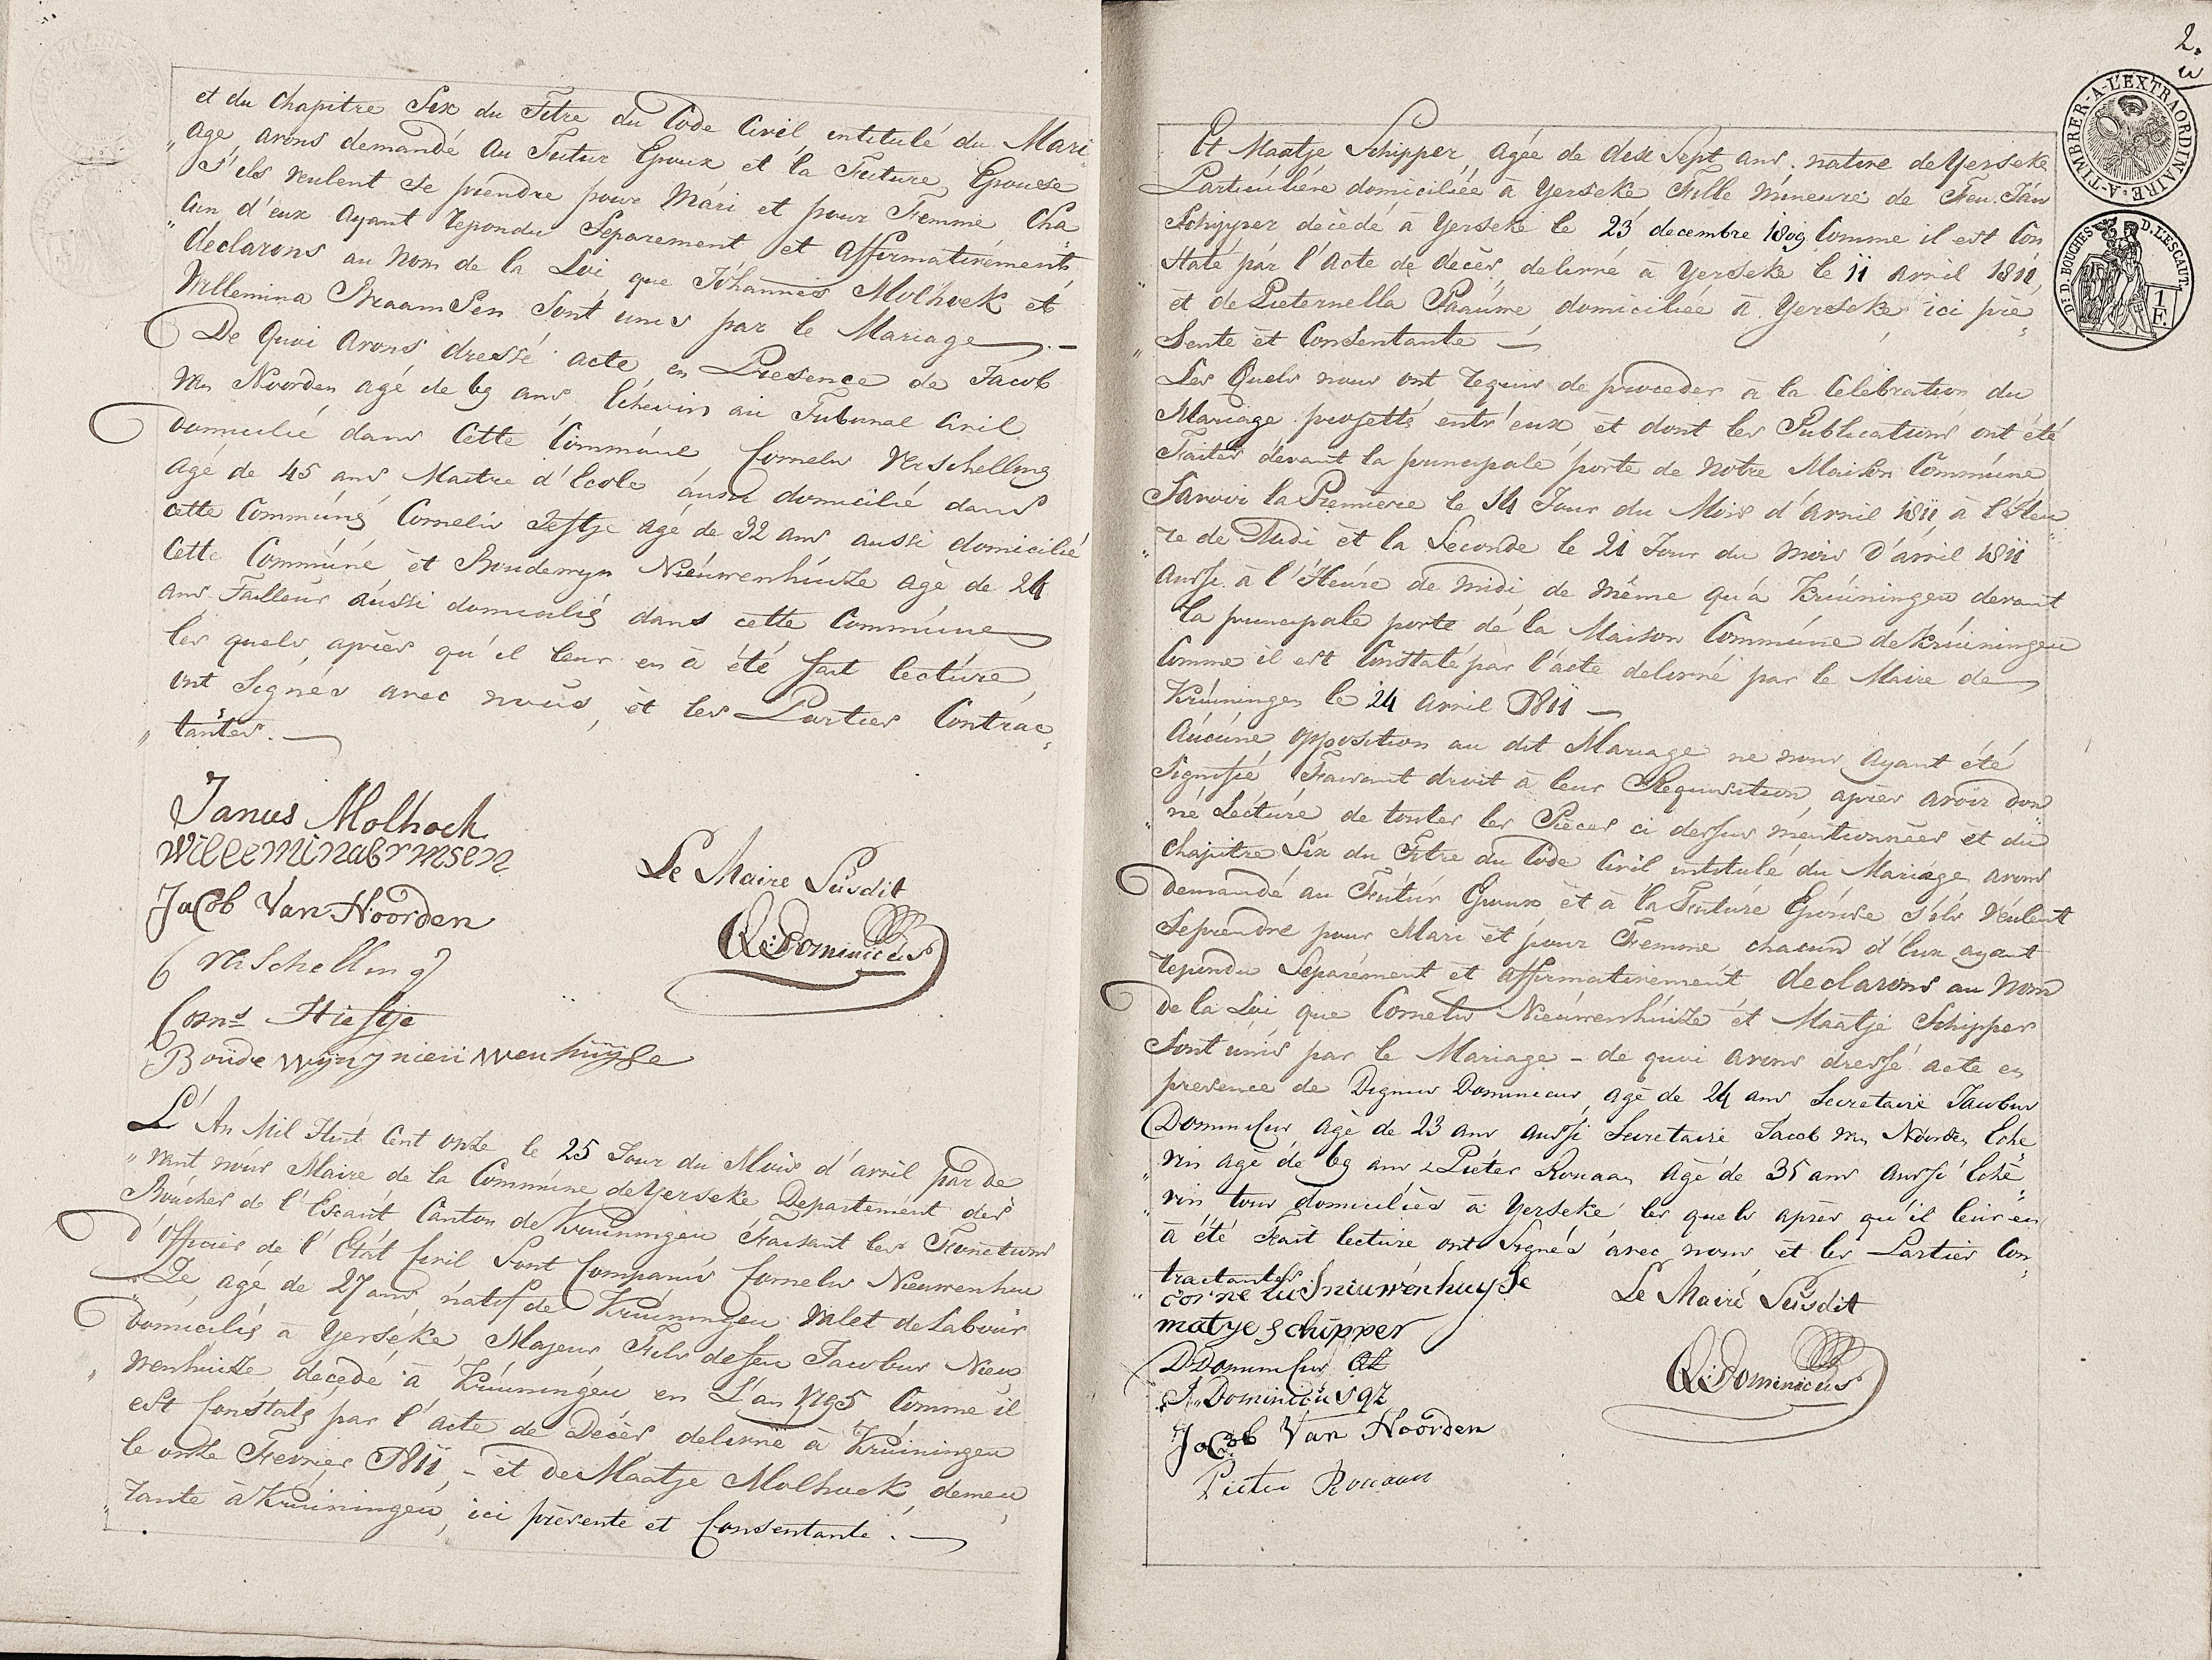 et du Chapitre Six du Titre du Code Civil intitulé du Mari
„ age avons demandé au Futur Epoux et la Future Epouse
s'ils veulent se prendre pour Mari et pour Femme Cha
„ cun d'eux ayant repondu Separement et affirmativement
declarons au nom de la Loi que Johannes Molhoek et
Willemina Braamsen Sont unis par le Mariage
De Quoi avons dressé acte en Presence de Jacob
van Noorden agé de 69 ans Echevin au Tribunal Civil
domicilié dans Cette Commune Cornelis Verschelling
agé de 45 ans Maitre d'Ecole aussi domicilié dans
cette Commune Cornelis agé de 32 ans aussi domicilié
Cette Commune et Boudewyn Nieuwenhuize agé de 24
ans Tailleur aussi domicilié dans cette Commune
les quels, après qu'il leur en a été fait lecture,
ont Signés avec nous, et les Parties Contrac
„ tantes.
Janus Molhoek
willeminabrmsen
Jacob Van Noorden
C verschelling
Corns Hiestje
Boudewijn nieuwenhuijse
Le Maire Susdit
Q: Dominicus
L'An Mil Huit Cent onze le 25 Jour du Mois d'avril par de
„ vant nous Maire de la Commune de Yerseke Departement des
Bouches de l'Escaut Canton de Kruiningen Faisant les Fonctions
d'Officier de l'Etat Civil Sont Comparus Cornelis Nieuwenhui
„ Ze, agé de 27 ans, natif de Kruiningen Valet de Labour
domicilié à Yerseke, Majeur Fils de feu Jacobus Nieu
„ wenhuize decedé à Kruiningen en L'an 1795 Comme il
est Constaté par l'acte de Décès delivré à Kruiningen
le onze Fevrier 1811, - et de Maatje Molhoek, demeu
„ rante à Kruiningen, ici présente et Consentante.
2.
Et Maatje Schipper, agée de dix Sept ans, native de Yerseke
Particuliére domiciliée à Yerseke Fille Mineure de Feu Jan
Schipper décédé à Yerseke le 23 decembre 1809 Comme il est Con
„ staté par l'Acte de décès, delivré à Yerseke le 11 avril 1811,
et de Pieternella Paaume, domiciliée à Yerseke ici pré
„ Sente et Consentante
Les Quels nous ont requis de proceder à la Celebration du
Mariage projetté entr'eux et dont les Publications ont été
Faites devant la principale porte de notre Maison Commune
Savoir la Première le 14 Jour du Mois d'Avril 1811 à l'Heu
„ re de Midi et la Seconde le 21 Jour du mois d'avril 1811
aussi à l'Heure de midi de même qu'à Kruiningen devant
la principale porte de la Maison Commune de Kruiningen
Comme il est Constaté par l'acte delivré par le Maire de
Kruiningen le 24 Avril 1811
Aucune opposition au dit Mariage ne nous ayant été
Signifié, Faisant droit à leur Requisition, après avoir don
„ né Lecture de toutes les Pièces ci dessus mentionnées et du
chapitre Six du Titre du Code Civil intitulé du Mariage avons
demandé au Futur Epoux et à la Future Epouse s'ils Veulent
Seprendre pour Mari et pour Femme chacun d'Eux ayant
repondu Separément et affirmativement declarons au Nom
de la Loi que Cornelis Nieuwenhuize et Maatje Schipper
Sont unis par le Mariage - de quoi avons dressé acte en
presence de Dignus Dominicus, agé de 24 ans Secretaire Jacobus
Dominicus agé de 23 ans aussi Secretaire Jacob van Noorden Eche
„ vin agé de 69 ans & Pieter Rouaan agé de 35 ans aussi Eché
„ vin tous domiciliés à Yerseke les quels après qu'il leur en
à été Fait lecture ont Signés avec nous et les Parties Con
„ tractantes
cornelis nieuwenhuyse
matye schipper
D Dominicus QZ
J. Dominicus QZ
Jacob Van Noorden
Pieter Rouaan
Le Mairé Susdit
Q: Dominicus
A-TIMBRER-A-L'EXTRAORDINAIRE
D.D. BOUCHES D. L'ESCAUT.
1 F.